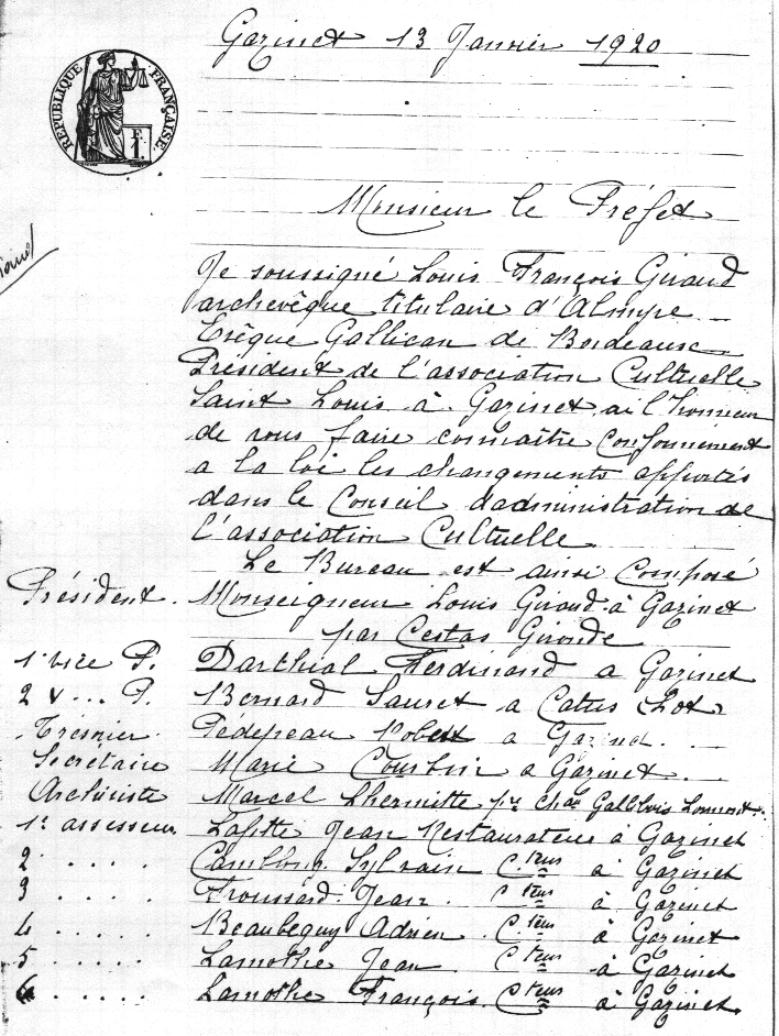 Gazinet 13 Janvier 1920
RÉPUBLIQUE FRANÇAISE.
F.
1.
Monsieur le Préfet
Je soussigné Louis François Giraud
archevêque titulaire d'Almyre
Evêque Gallican de Bordeaux
Président de l'association Cultuelle
Saint Louis à Gazinet, a l'honneur
de vous faire connaître Conformément
a la loi les changements apportés
dans le Conseil dadministration de
l'association Cultuelle
Le Bureau est ainsi Composé
Président. Monseigneur Louis Giraud à Gazinet
par Cestas Gironde
1er vice P. Darthial Ferdinand a Gazinet
2 v... P. Bernard Sauret a Catus (Lot)
Trésorier. Pédepeau Robert a Gazinet.
Secrétaire Marie Courbin a Gazinet.
Archiviste Marcel Lhermitte
1er assesseur. Lafitte Jean Restaurateur a Gazinet
2 .... Sylvain C.teur à Gazinet
3 ..... Troussard Jean. C.teur à Gazinet
4 ..... Beaubeguy Adrien. C.teur à Gazinet
5 ..... Lamothe Jean. C.teur à Gazinet
6 ..... Lamothe François. C.teur à Gazinet.